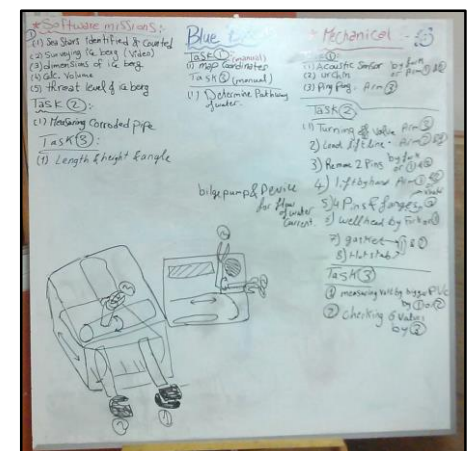 * Software missions:
(1) Sea Stars identified & Counted
(2) Surveying ice berg (Video)
(3) dimensions of ice berg
(4) Calc. Volume
(5) threat level of ice berg
Task ②:
(1) Measuring Corroded pipe
Task ③:
(1) Length & height & angle
Blue
Task ① (manual)
(1) map Coordinates
Task ② (manual)
(1) Determine Pathway of water.
bilge pump & Device
for flow
of water
Current.
* Mechanical
(1) Acoustic Sensor by fork
or Arm
(2) urchin
(3) Ping Pong. Arm ③
Task ②
(1) Turning of Valve Arm ③
2) Lead lift line - Arm
3) Remove 2 Pins by fork
or
4) lift by hand Arm ①
5) 4 Pins & flanges ②
6) Wellhead by Fork or ①
7) gasket
8) Hot stab
Task ③
① measuring
by ① or ②
② checking 6 Valves
by ②